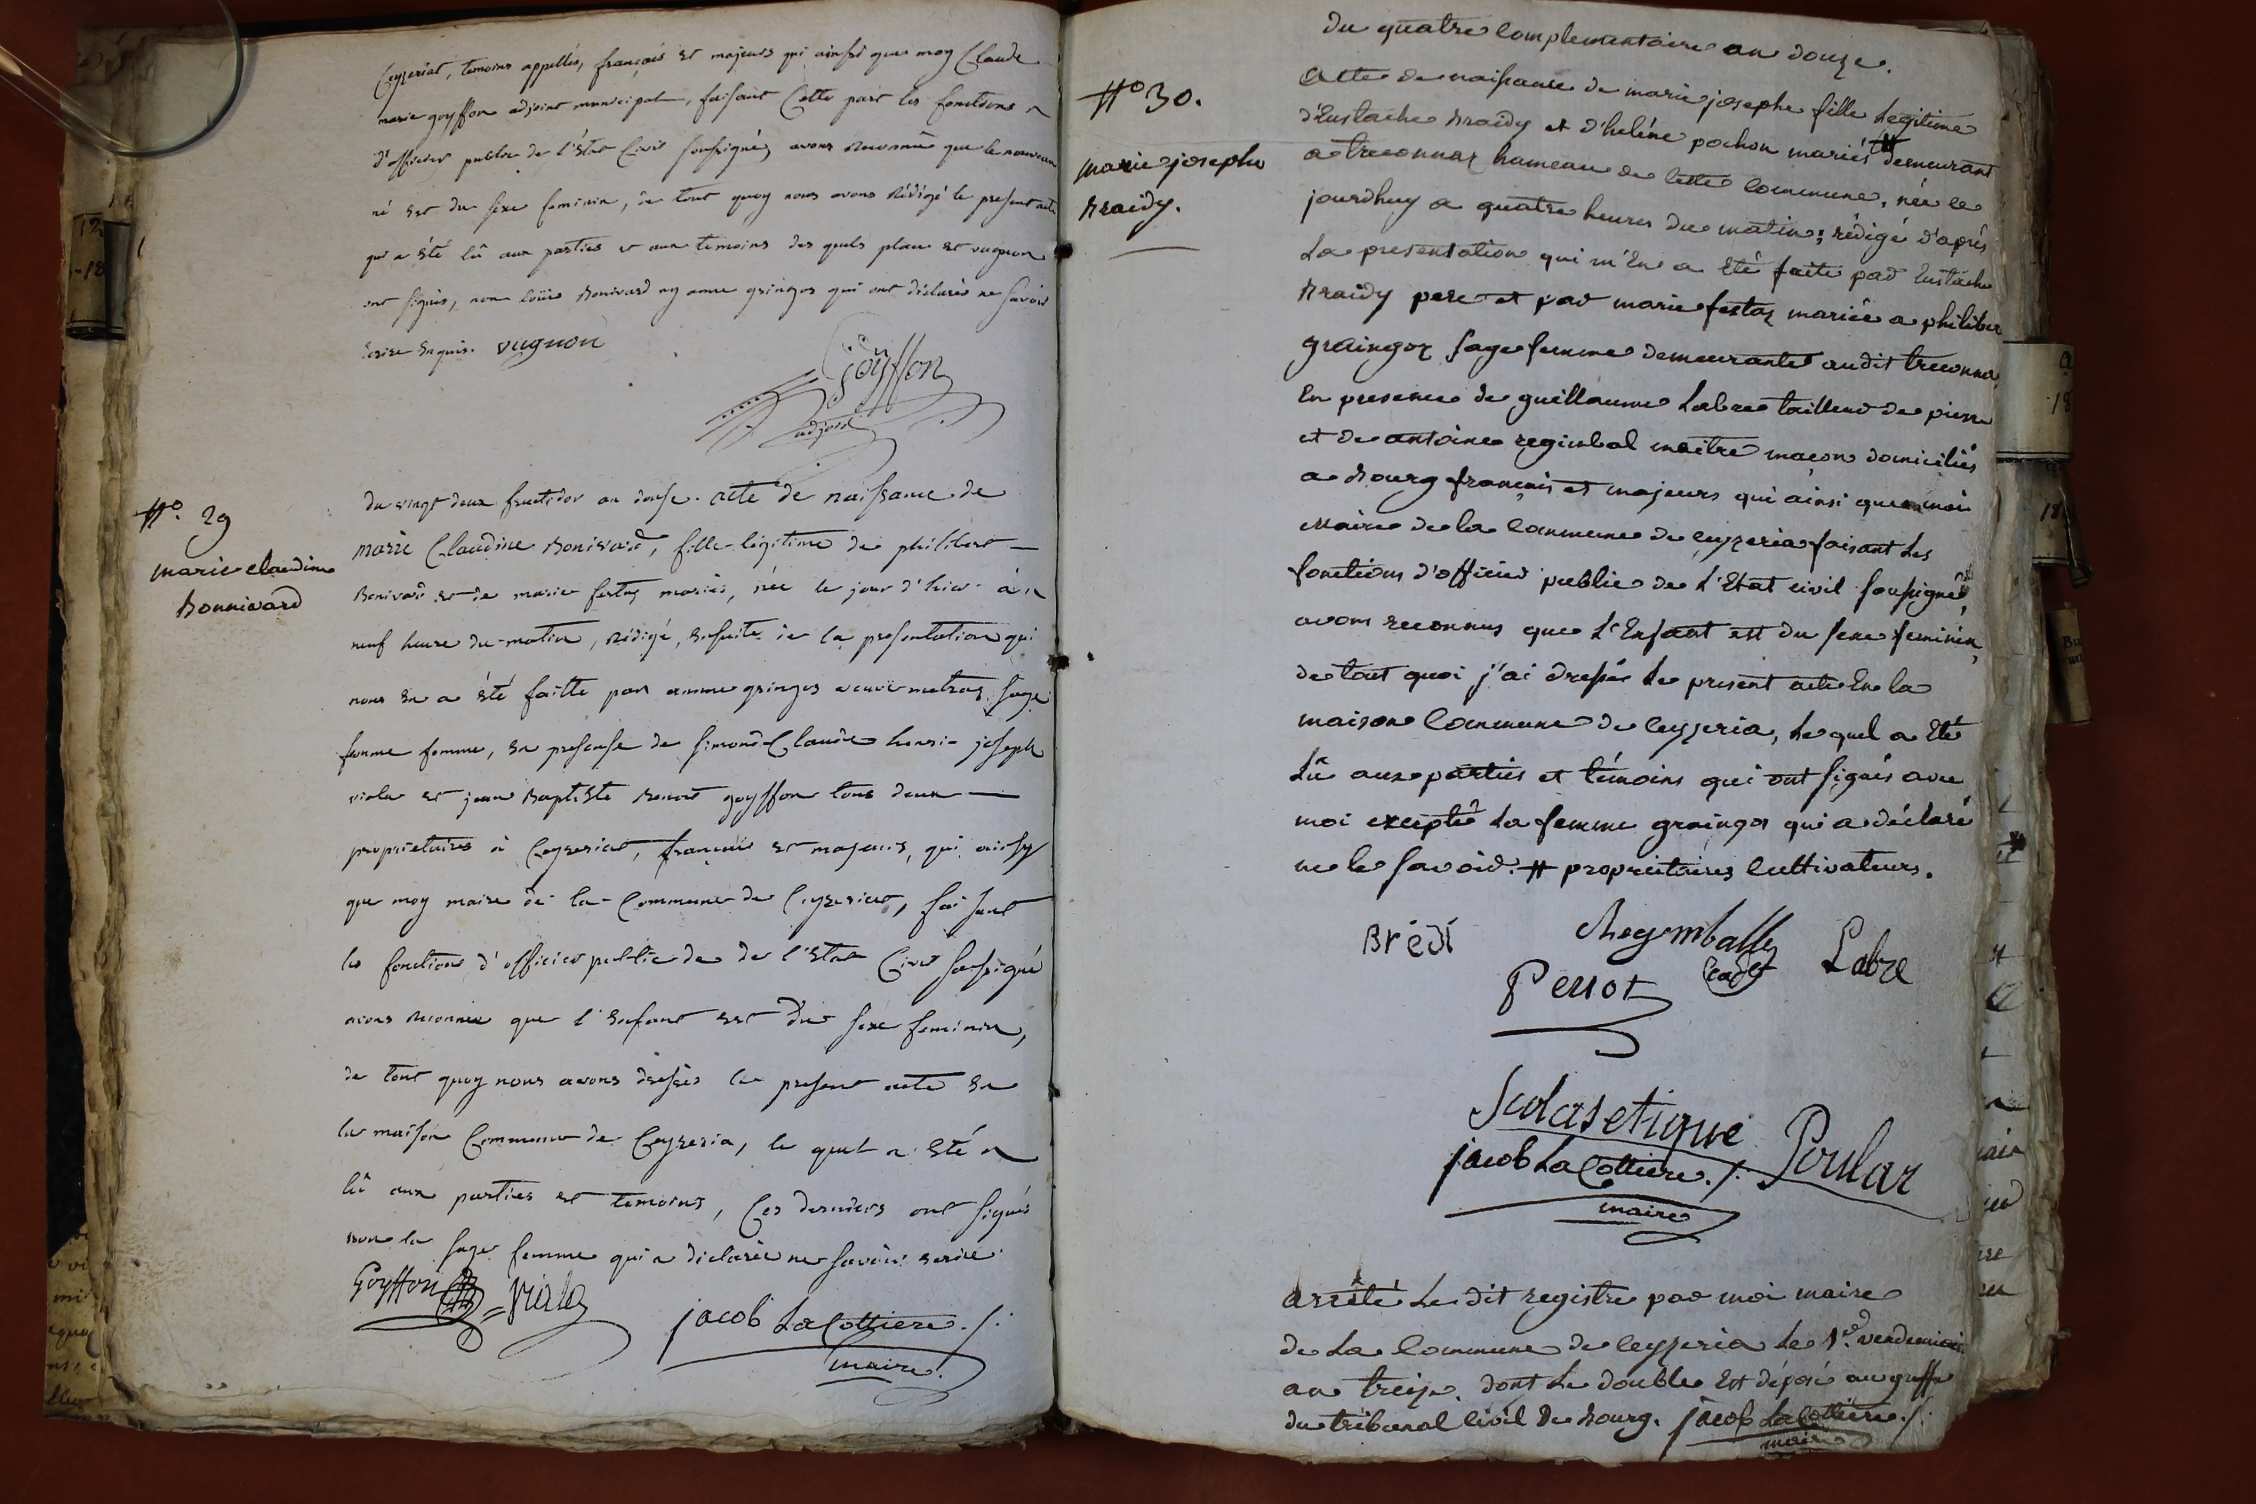 Ceyzeriat, temoins appellés, français et majeurs qui ainsi que moy Claude
marie goyffon adjoint municipal, faisant Cette part les fonctions
d'officier public de l'état Civil soussignés avons reconnu que le nouveau
né est du sexe feminin, de tout quoy nous avons rédigé le present acte
qui a été lû aux parties et aux temoins des quels plan et vugnon
ont signés, non loüis Bonivard ny anne gringoz qui ont déclarés ne savoir
Ecrire Enquis. vugnon
Goyffon
adjoint
N° 29
marie claudine
Bonnivard
du vingt deux fructidor an douse. acte de naissance de
marie Claudine Bonivard, fille légitime de philibert
Bonivard et de marie festaz mariés, née le jour d'hier à
neuf heure du matin, rédigé, Ensuite de la presentation qui
nous En a été faitte par anne gringoz veuve metraz sage
femme femme, En presense de simond Claude henri joseph
viala et jean Baptiste Benoit goyffon tous deux
proprietaires à Ceyzeriat, français et majeurs, qui ainsy
que moy maire de la Commune de Ceyzeriat, faisant
les fonctions d'officier public de de l'état Civil soussigné
avons reconnu que l'Enfant est du sexe feminin,
de tout quoy nous avons dressés le present acte En
la maison Commune de Ceyzeria, le quel a été
lû aux parties et temoins, Ces derniers ont signés
non la sage femme qui a déclarée ne savoir Ecrire.
Goyffon Viala
jacob LaCottiere
maire.
du quatre complementaire an douze.
N° 30.
marie josephe
Braidy.
Acte de naissance de marie josephe fille Legitime
d'Eustache Braidy et d'heléne pochon mariés # demeurant
a treconnaz hameau de cette Commune, née ce
jourdhuy a quatre heures du matin; rédigé d'aprés
La presentation qui m'En a Eté faite par Eustache
Braidy pere et par marie festaz mariée a philiber
graingoz sage femme demeurante audit treconna
En presence de guillaume Labre tailleur de pierre
et de antoine regimbal maitre maçon domiciliés
a Bourg français et majeurs qui ainsi que moi
Maire de la Commune de ceyzeria faisant Les
fonctions d'officier public de L'Etat civil soussignés,
avons reconnus que L'Enfant est du sexe feminin,
de tout quoi j'ai dressé Le present acte En la
maison Commune de Ceyzeria, Le quel a Eté
Lû aux parties et témoins qui ont signés avec
moi excepté La femme graingoz qui a déclaré
ne le savoir. # proprietaires Cultivateurs.
Brédi
Regimballe
Cadet
Labre
Perrot
Scolasetique Poular
jacob LaCottiere
maire
arrêté Le dit registre par moi maire
de La Commune de Ceyzeria Le 1er vendemiaire
an treize, dont Le double Est déposé au greffe
du tribunal Civil de Bourg. jacob LaCottiere
maire